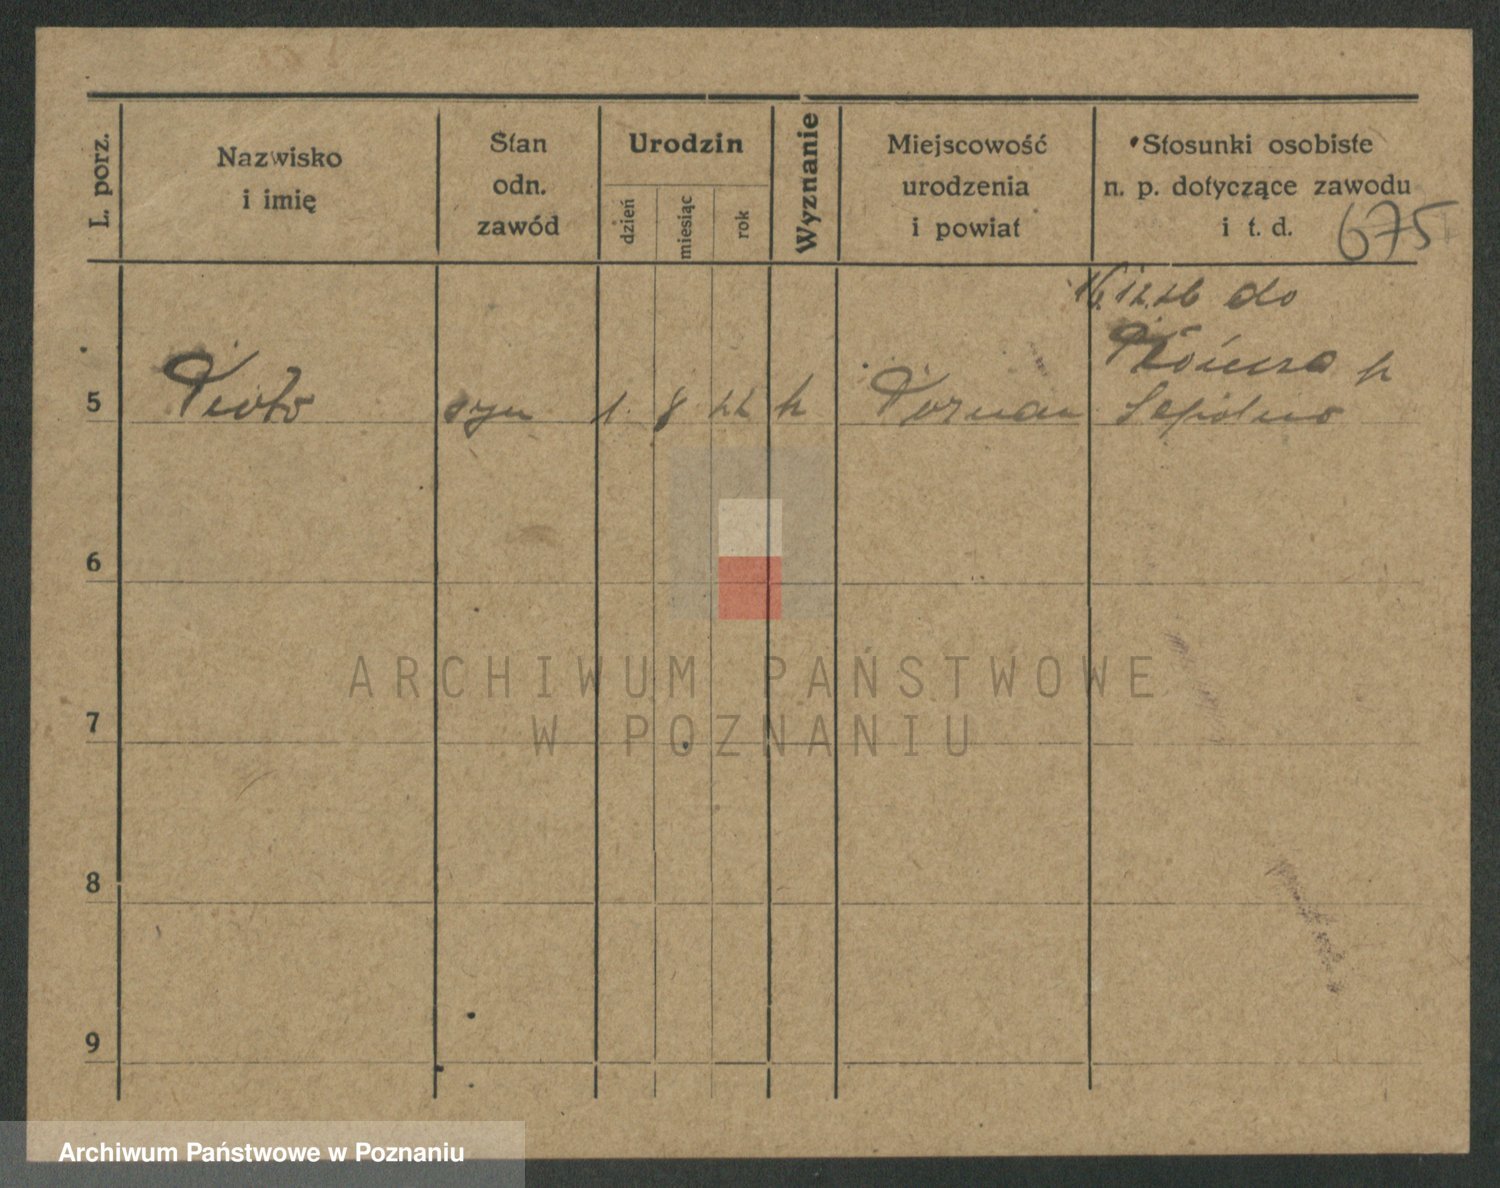 L. porz.
Nazwisko
i imię
Stan
odn.
zawód
Urodzin
dzień
miesiąc
rok
Wyznanie
Miejscowość
urodzenia
i powiat
Stosunki osobiste
n. p. dotyczące zawodu
i t. d.
675
16.12.26 do
p
5 Piotr syn 1 8 22 k Poznań Sępolno
6
7
8
9
ARCHIWUM PAŃSTWOWE
W POZNANIU
Archiwum Państwowe w Poznaniu